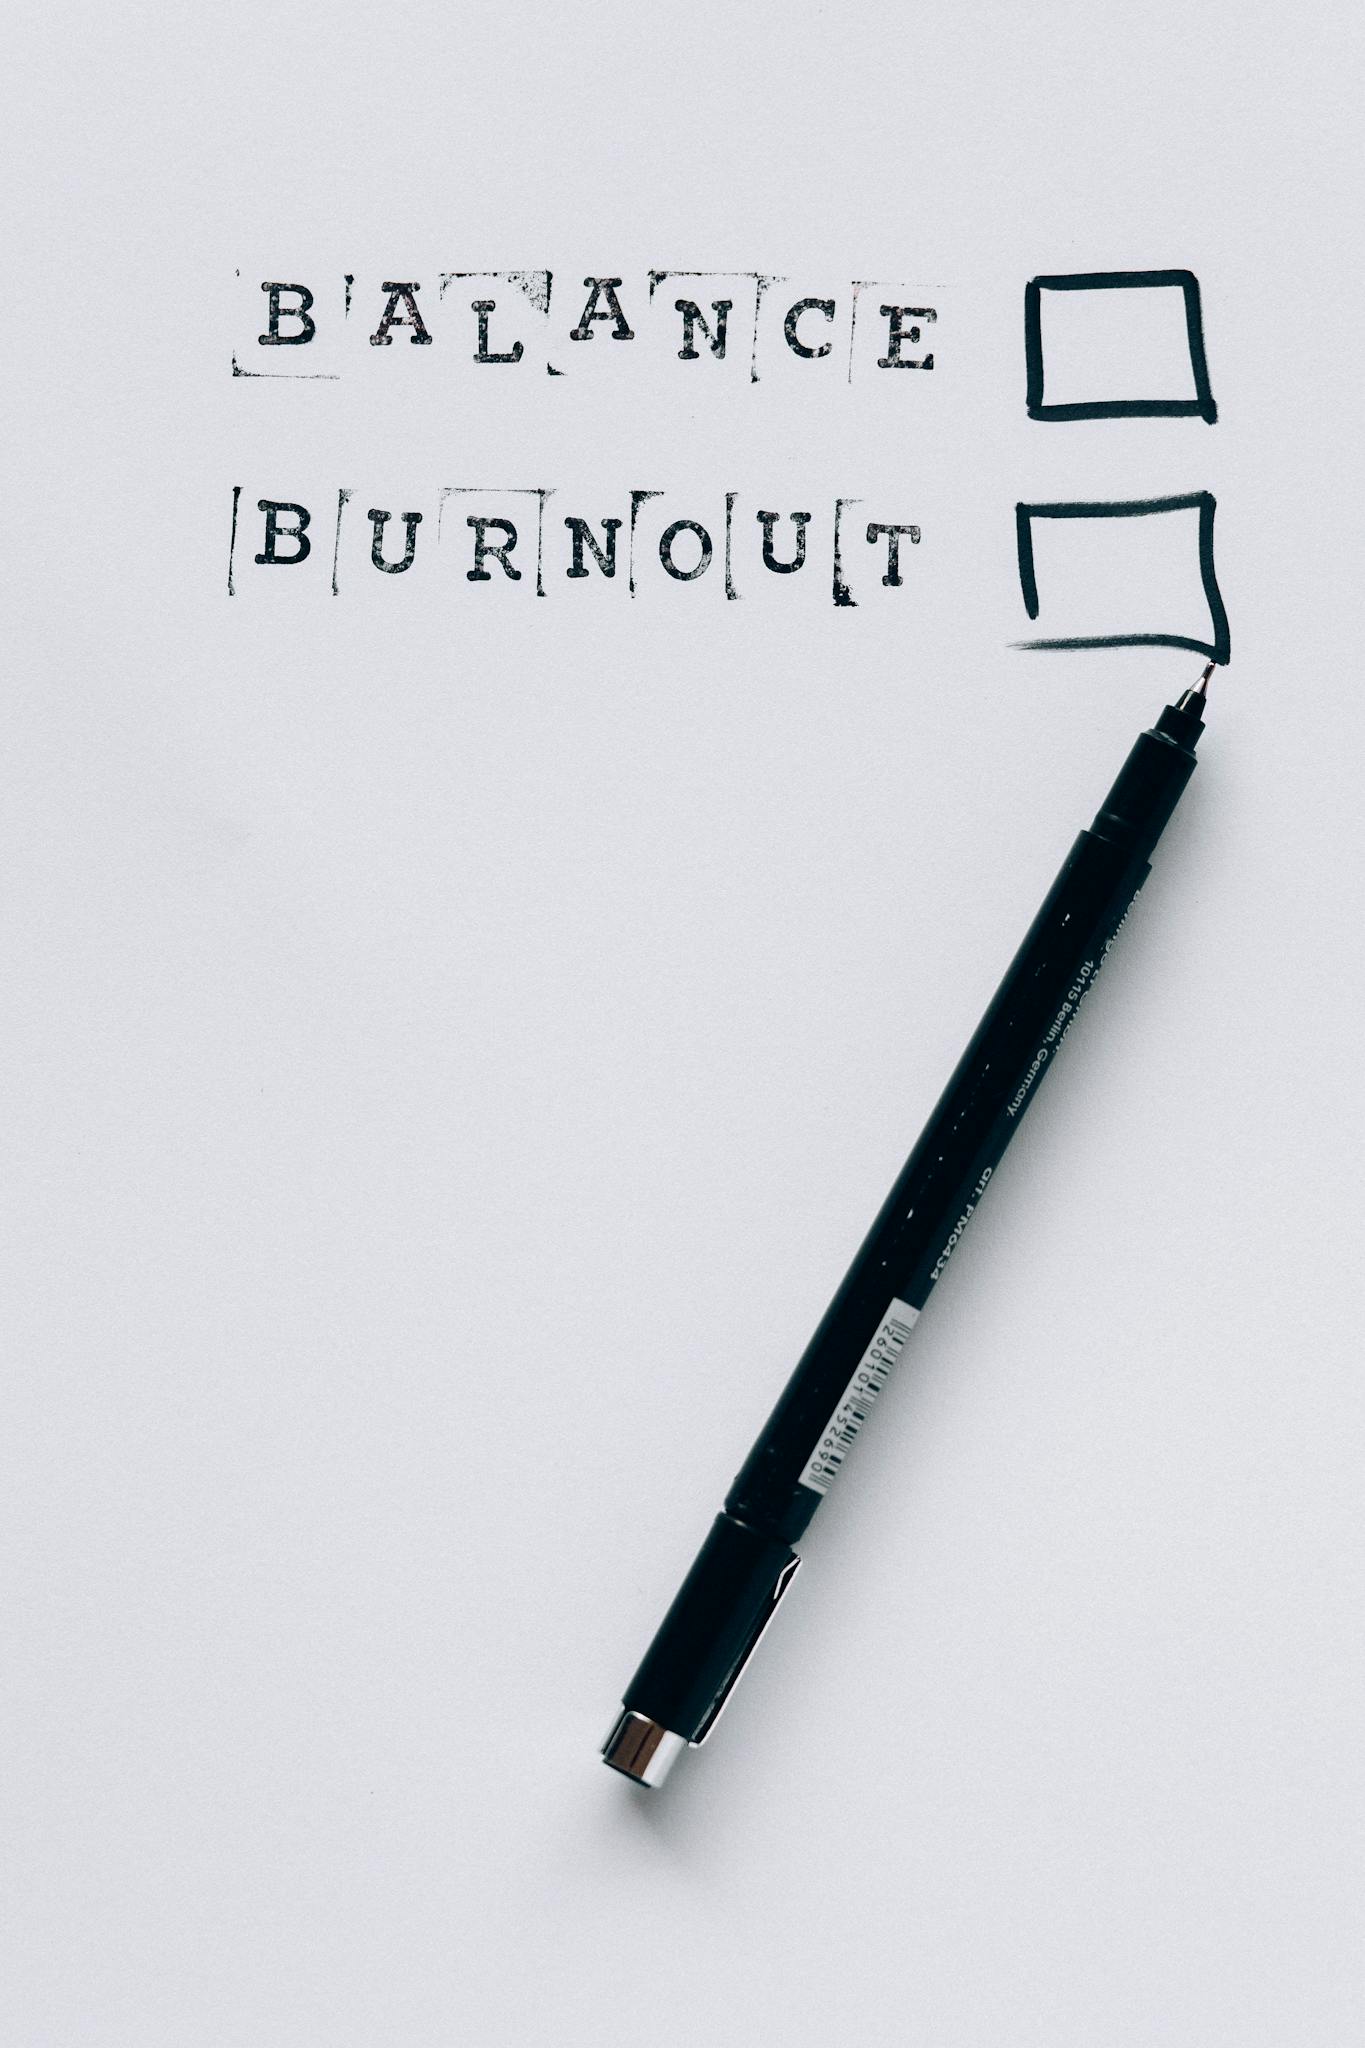 BALANCE
BURNOUT
10115 Berlin, Germany.
art. PM6434
2601014452690